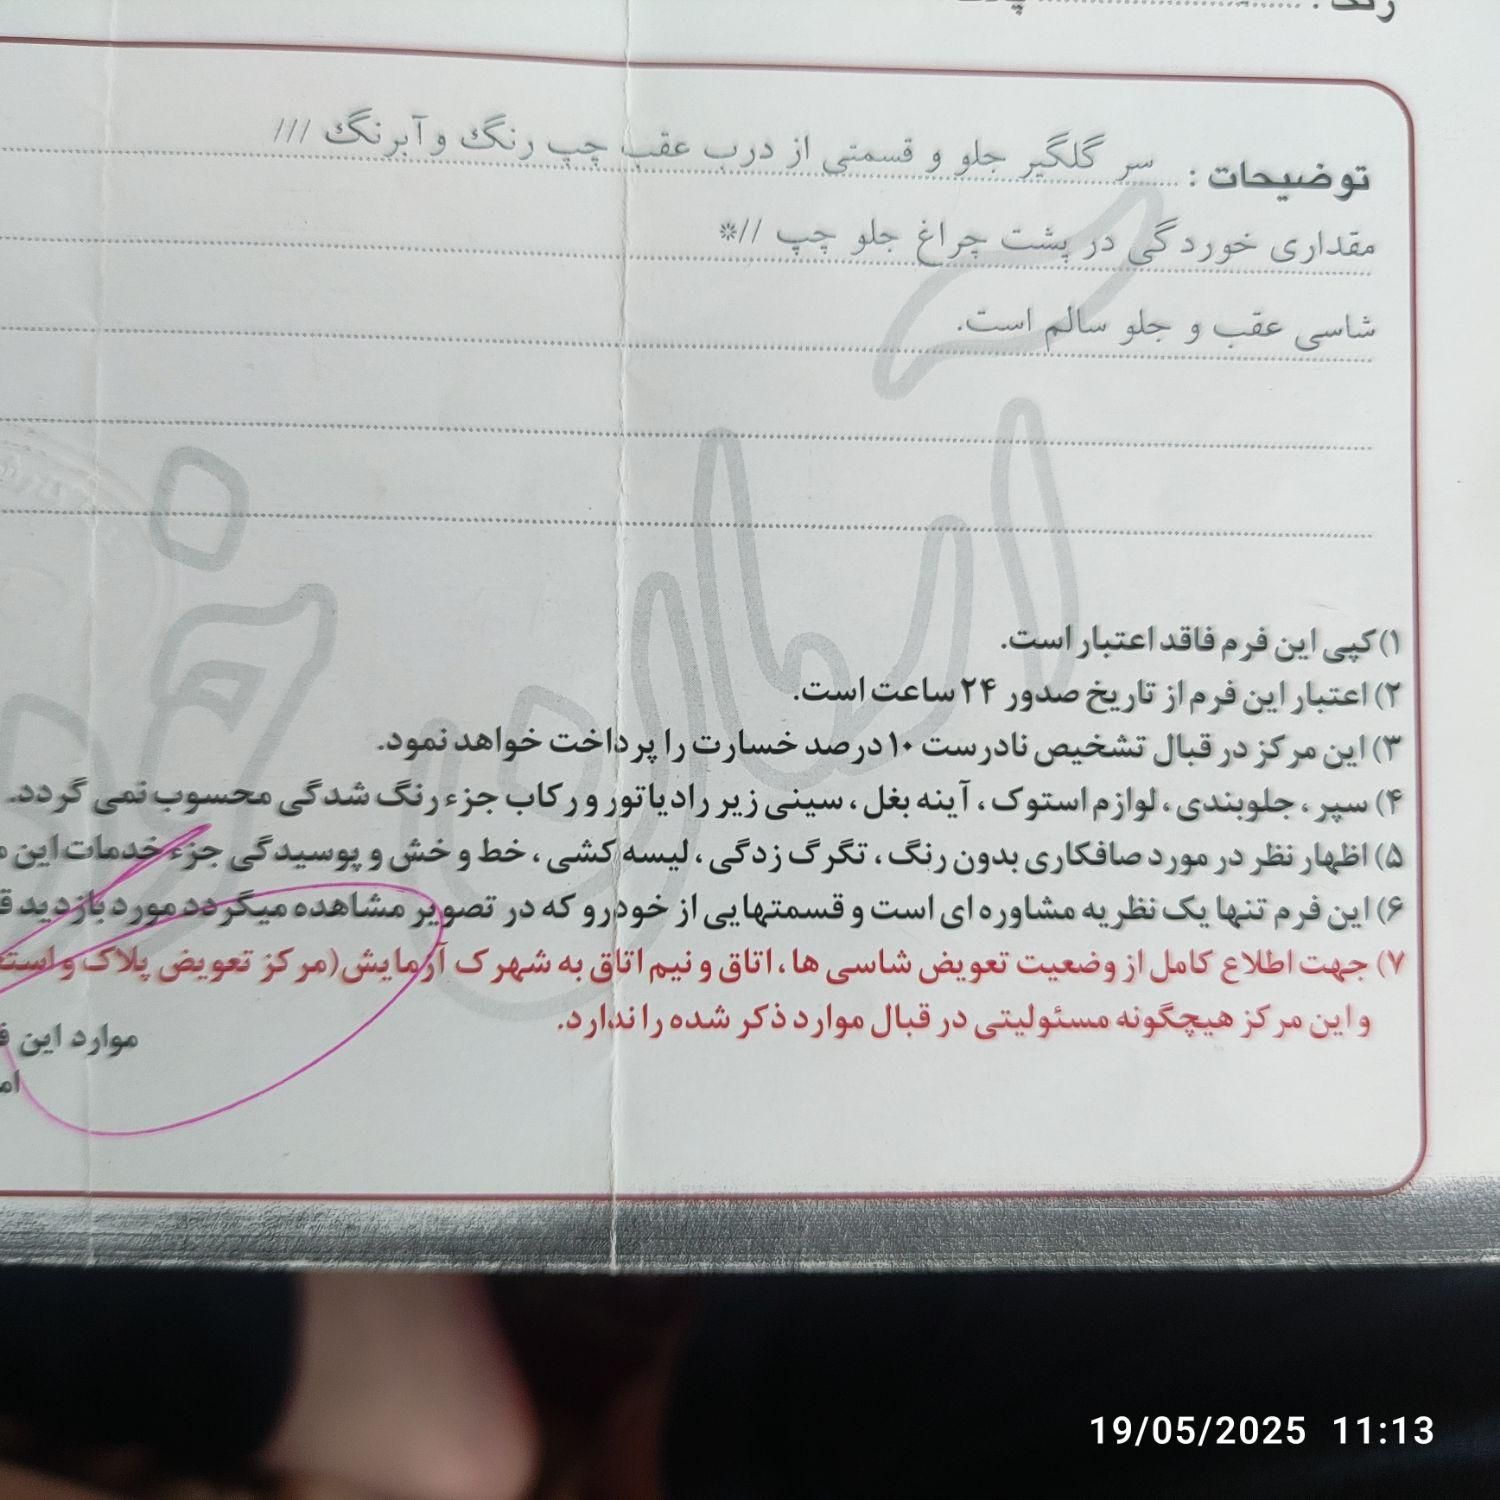 رنگ : پلاک
توضیحات : سر گلگیر جلو و قسمتی از درب عقب چپ رنگ و آبرنگ ///
مقداری خوردگی در پشت چراغ جلو چپ //*
شاسی عقب و جلو سالم است.
۱) کپی این فرم فاقد اعتبار است.
۲) اعتبار این فرم از تاریخ صدور ۲۴ ساعت است.
۳) این مرکز در قبال تشخیص نادرست ۱۰ درصد خسارت را پرداخت خواهد نمود.
۴) سپر ، جلوبندی ، لوازم استوک ، آینه بغل ، سینی زیر رادیاتور و رکاب جزء رنگ شدگی محسوب نمی گردد.
۵) اظهار نظر در مورد صافکاری بدون رنگ ، تگرگ زدگی ، لیسه کشی ، خط و خش و پوسیدگی جزء خدمات این
۶) این فرم تنها یک نظریه مشاوره ای است و قسمتهایی از خودرو که در تصویر مشاهده میگردد مورد بازدید
۷) جهت اطلاع کامل از وضعیت تعویض شاسی ها ، اتاق و نیم اتاق به شهرک آزمایش (مرکز تعویض پلاک و
و این مرکز هیچگونه مسئولیتی در قبال موارد ذکر شده را ندارد.
موارد این
19/05/2025 11:13